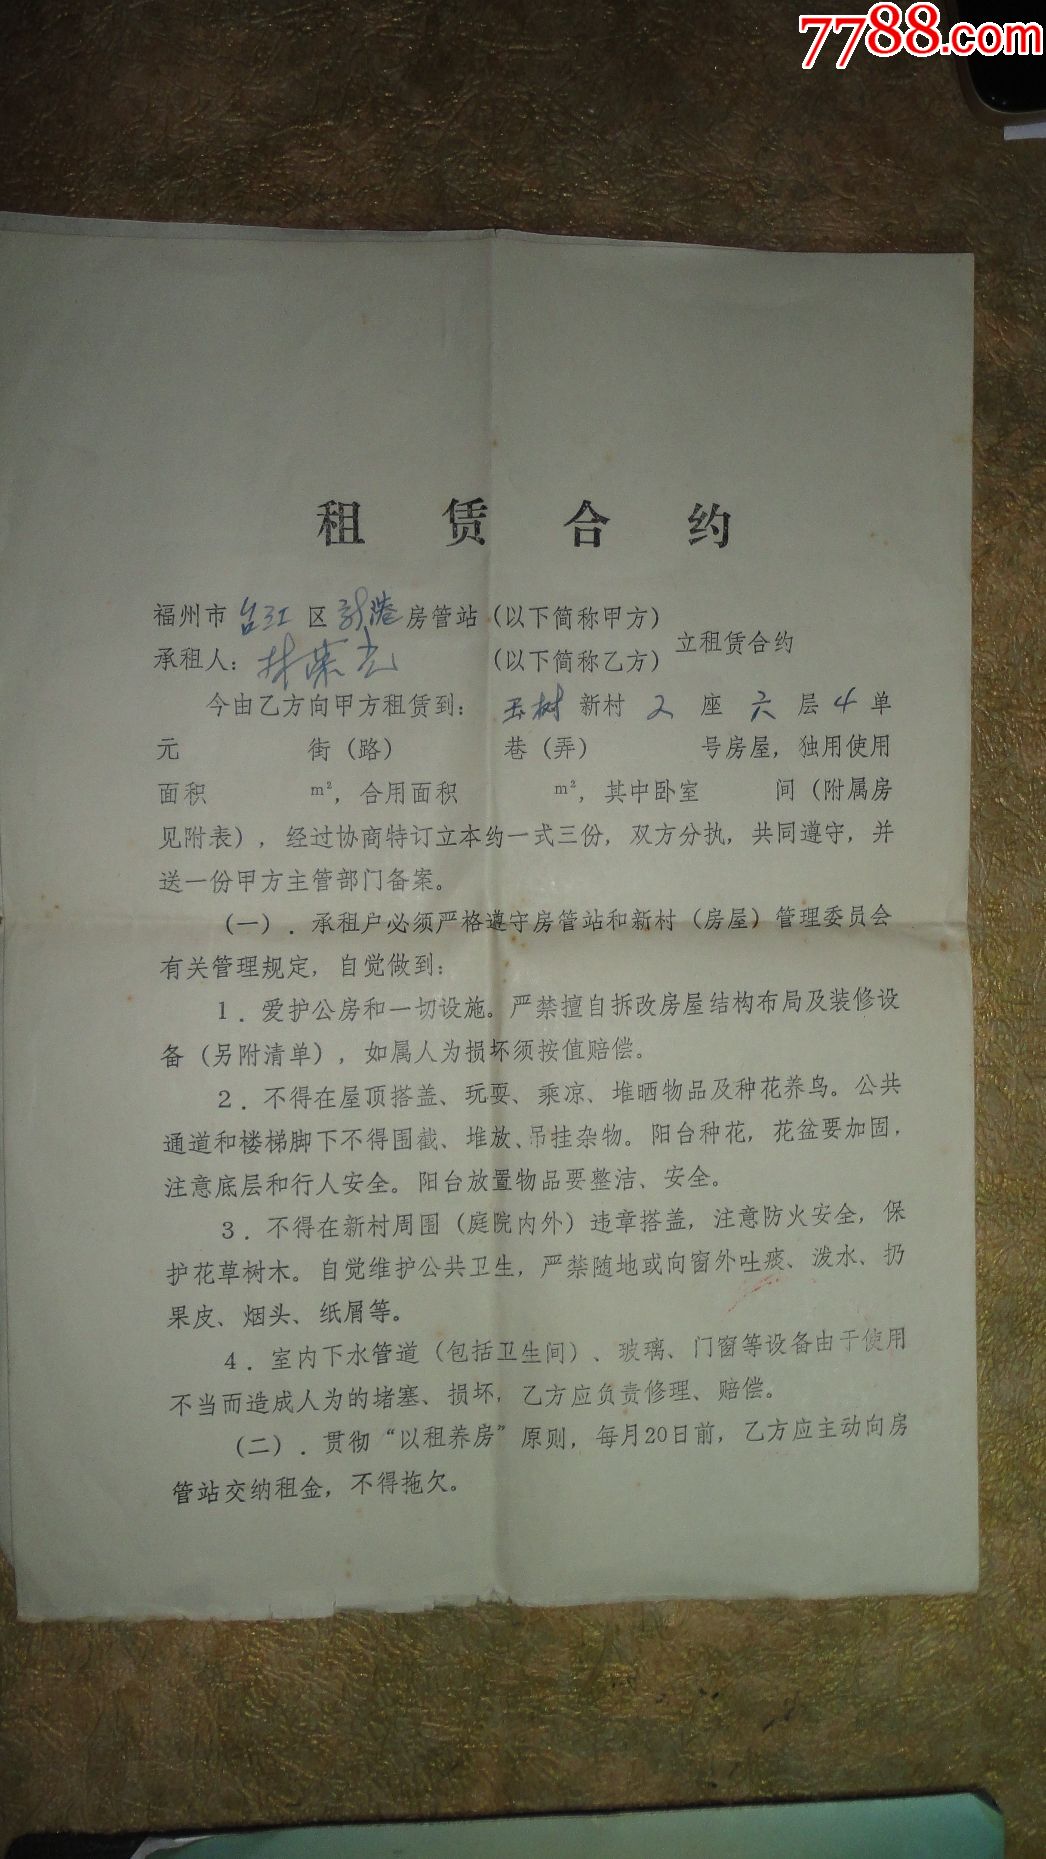 7788.com
租赁合约
福州市台江区新港房管站（以下简称甲方）
立租赁合约
承租人：林荣光（以下简称乙方）
今由乙方向甲方租赁到：玉树新村2座六层4单
元 街（路） 巷（弄） 号房屋，独用使用
面积 m²，合用面积 m²，其中卧室 间（附属房
见附表），经过协商特订立本约一式三份，双方分执，共同遵守，并
送一份甲方主管部门备案。
（一）．承租户必须严格遵守房管站和新村（房屋）管理委员会
有关管理规定，自觉做到：
1．爱护公房和一切设施。严禁擅自拆改房屋结构布局及装修设
备（另附清单），如属人为损坏须按值赔偿。
2．不得在屋顶搭盖、玩耍、乘凉、堆晒物品及种花养鸟。公共
通道和楼梯脚下不得围截、堆放、吊挂杂物。阳台种花，花盆要加固，
注意底层和行人安全。阳台放置物品要整洁、安全。
3．不得在新村周围（庭院内外）违章搭盖，注意防火安全，保
护花草树木。自觉维护公共卫生，严禁随地或向窗外吐痰、泼水、扔
果皮、烟头、纸屑等。
4．室内下水管道（包括卫生间）、玻璃、门窗等设备由于使用
不当而造成人为的堵塞、损坏，乙方应负责修理、赔偿。
（二）．贯彻“以租养房”原则，每月20日前，乙方应主动向房
管站交纳租金，不得拖欠。